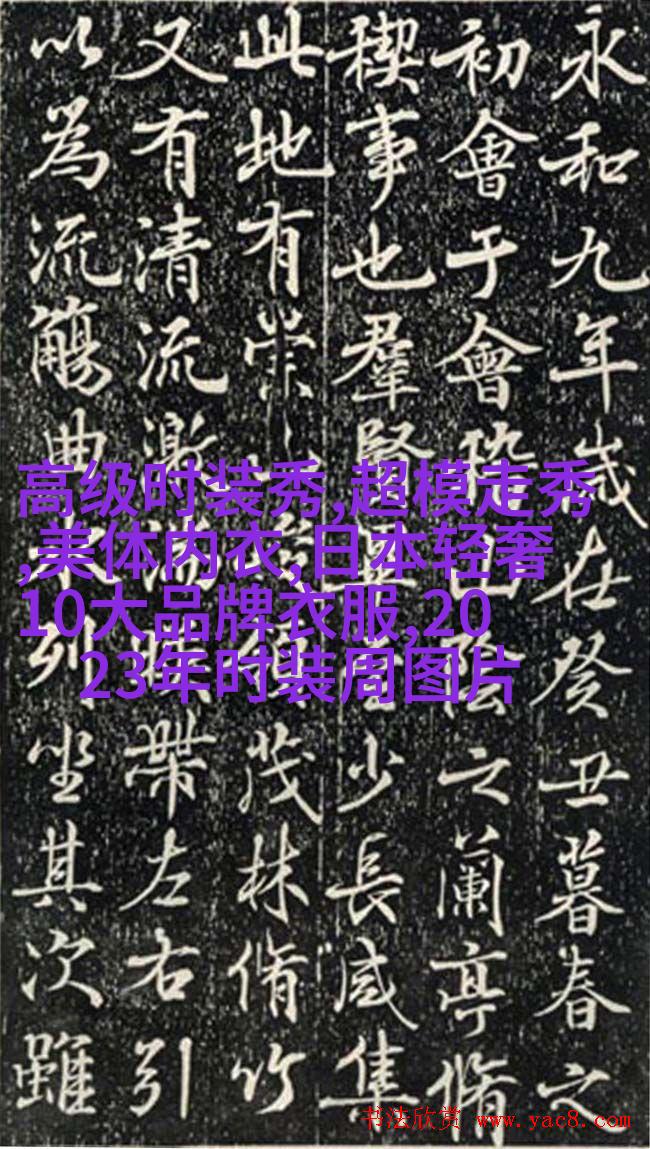 永和九年歲在癸丑暮春之
初會于會稽陰之蘭亭脩
稧事也羣賢畢至少長咸集
此地有崇茂林脩竹
又有清流激湍帶左右引
以為流觴曲水列坐其次雖
高级时装秀,超模走秀
,美体内衣,日本轻奢
10大品牌衣服,20
23年时装周图片
书法欣赏 www.yac8.com